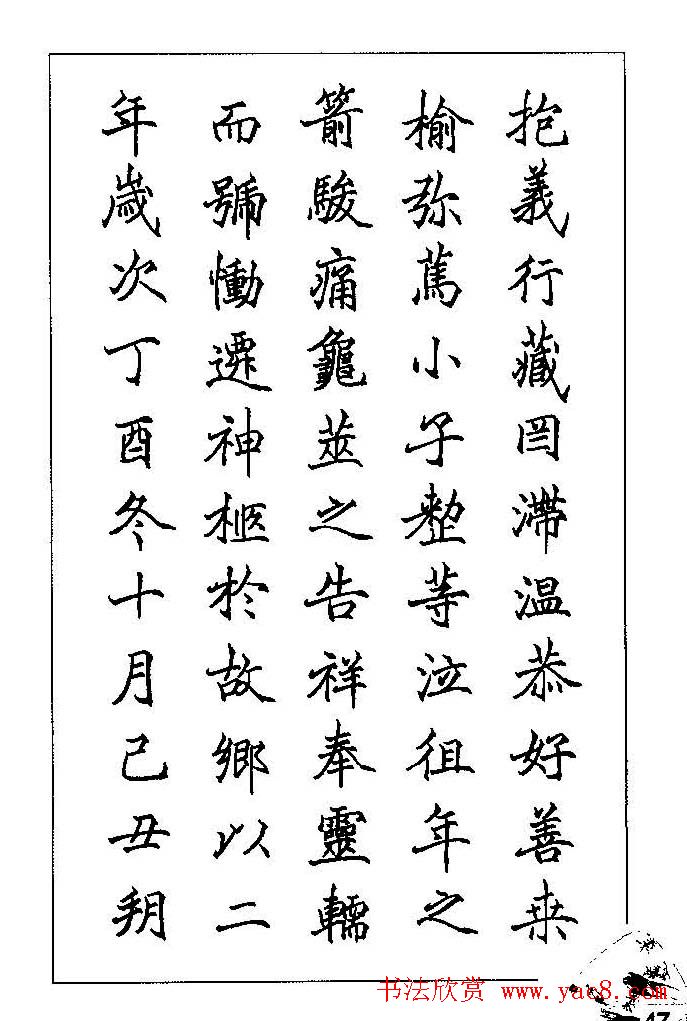 抱義行藏罔滯温恭好善桒
榆弥蔦小子整等泣徂年之
箭駿痛龜莁之告祥奉靈轜
而號慟遷神柩於故鄉以二
年歲次丁酉冬十月己丑朔
书法欣赏 www.yac8.com
47